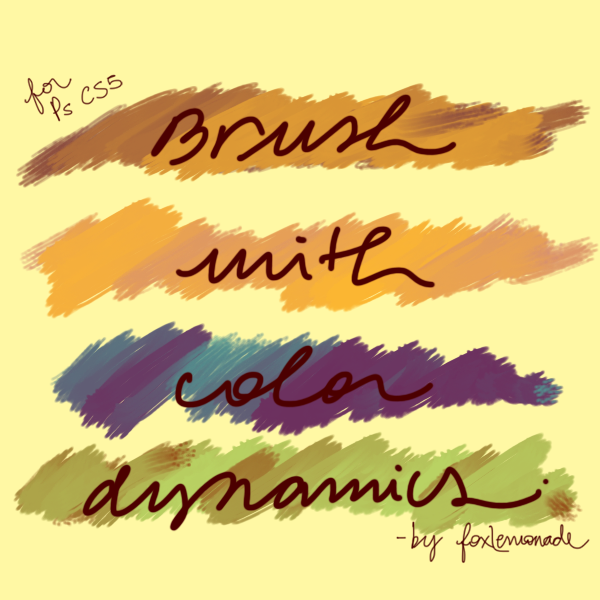 for
Ps CS5
Brush
with
color
dynamics.
-by foxlemonade